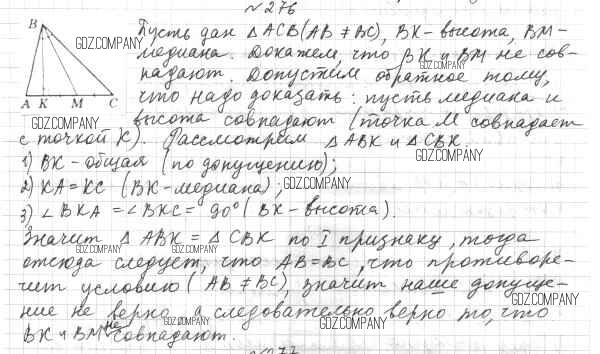 №276
B
A K M C
Пусть дан △ ACB (AB ≠ BC), BK - высота, BM -
медиана. Докажем, что BK и BM не сов-
падают. Допустим обратное тому,
что надо доказать: пусть медиана и
высота совпадают (точка M совпадает
с точкой K). Рассмотрим △ ABK и △ CBK.
1) BK - общая (по допущению);
2) KA = KC (BK - медиана);
3) ∠ BKA = ∠ BKC = 90° (BK - высота).
Значит △ ABK = △ CBK по I признаку, тогда
отсюда следует, что AB = BC, что противоре-
чит условию (AB ≠ BC), значит наше допуще-
ние не верно, а следовательно верно то, что
BK и BM не совпадают.
№277
GDZ.COMPANY
GDZ.COMPANY
GDZ.COMPANY
GDZ.COMPANY
GDZ.COMPANY
GDZ.COMPANY
GDZ.COMPANY
GDZ.COMPANY
GDZ.COMPANY
GDZ.COMPANY
GDZ.COMPANY